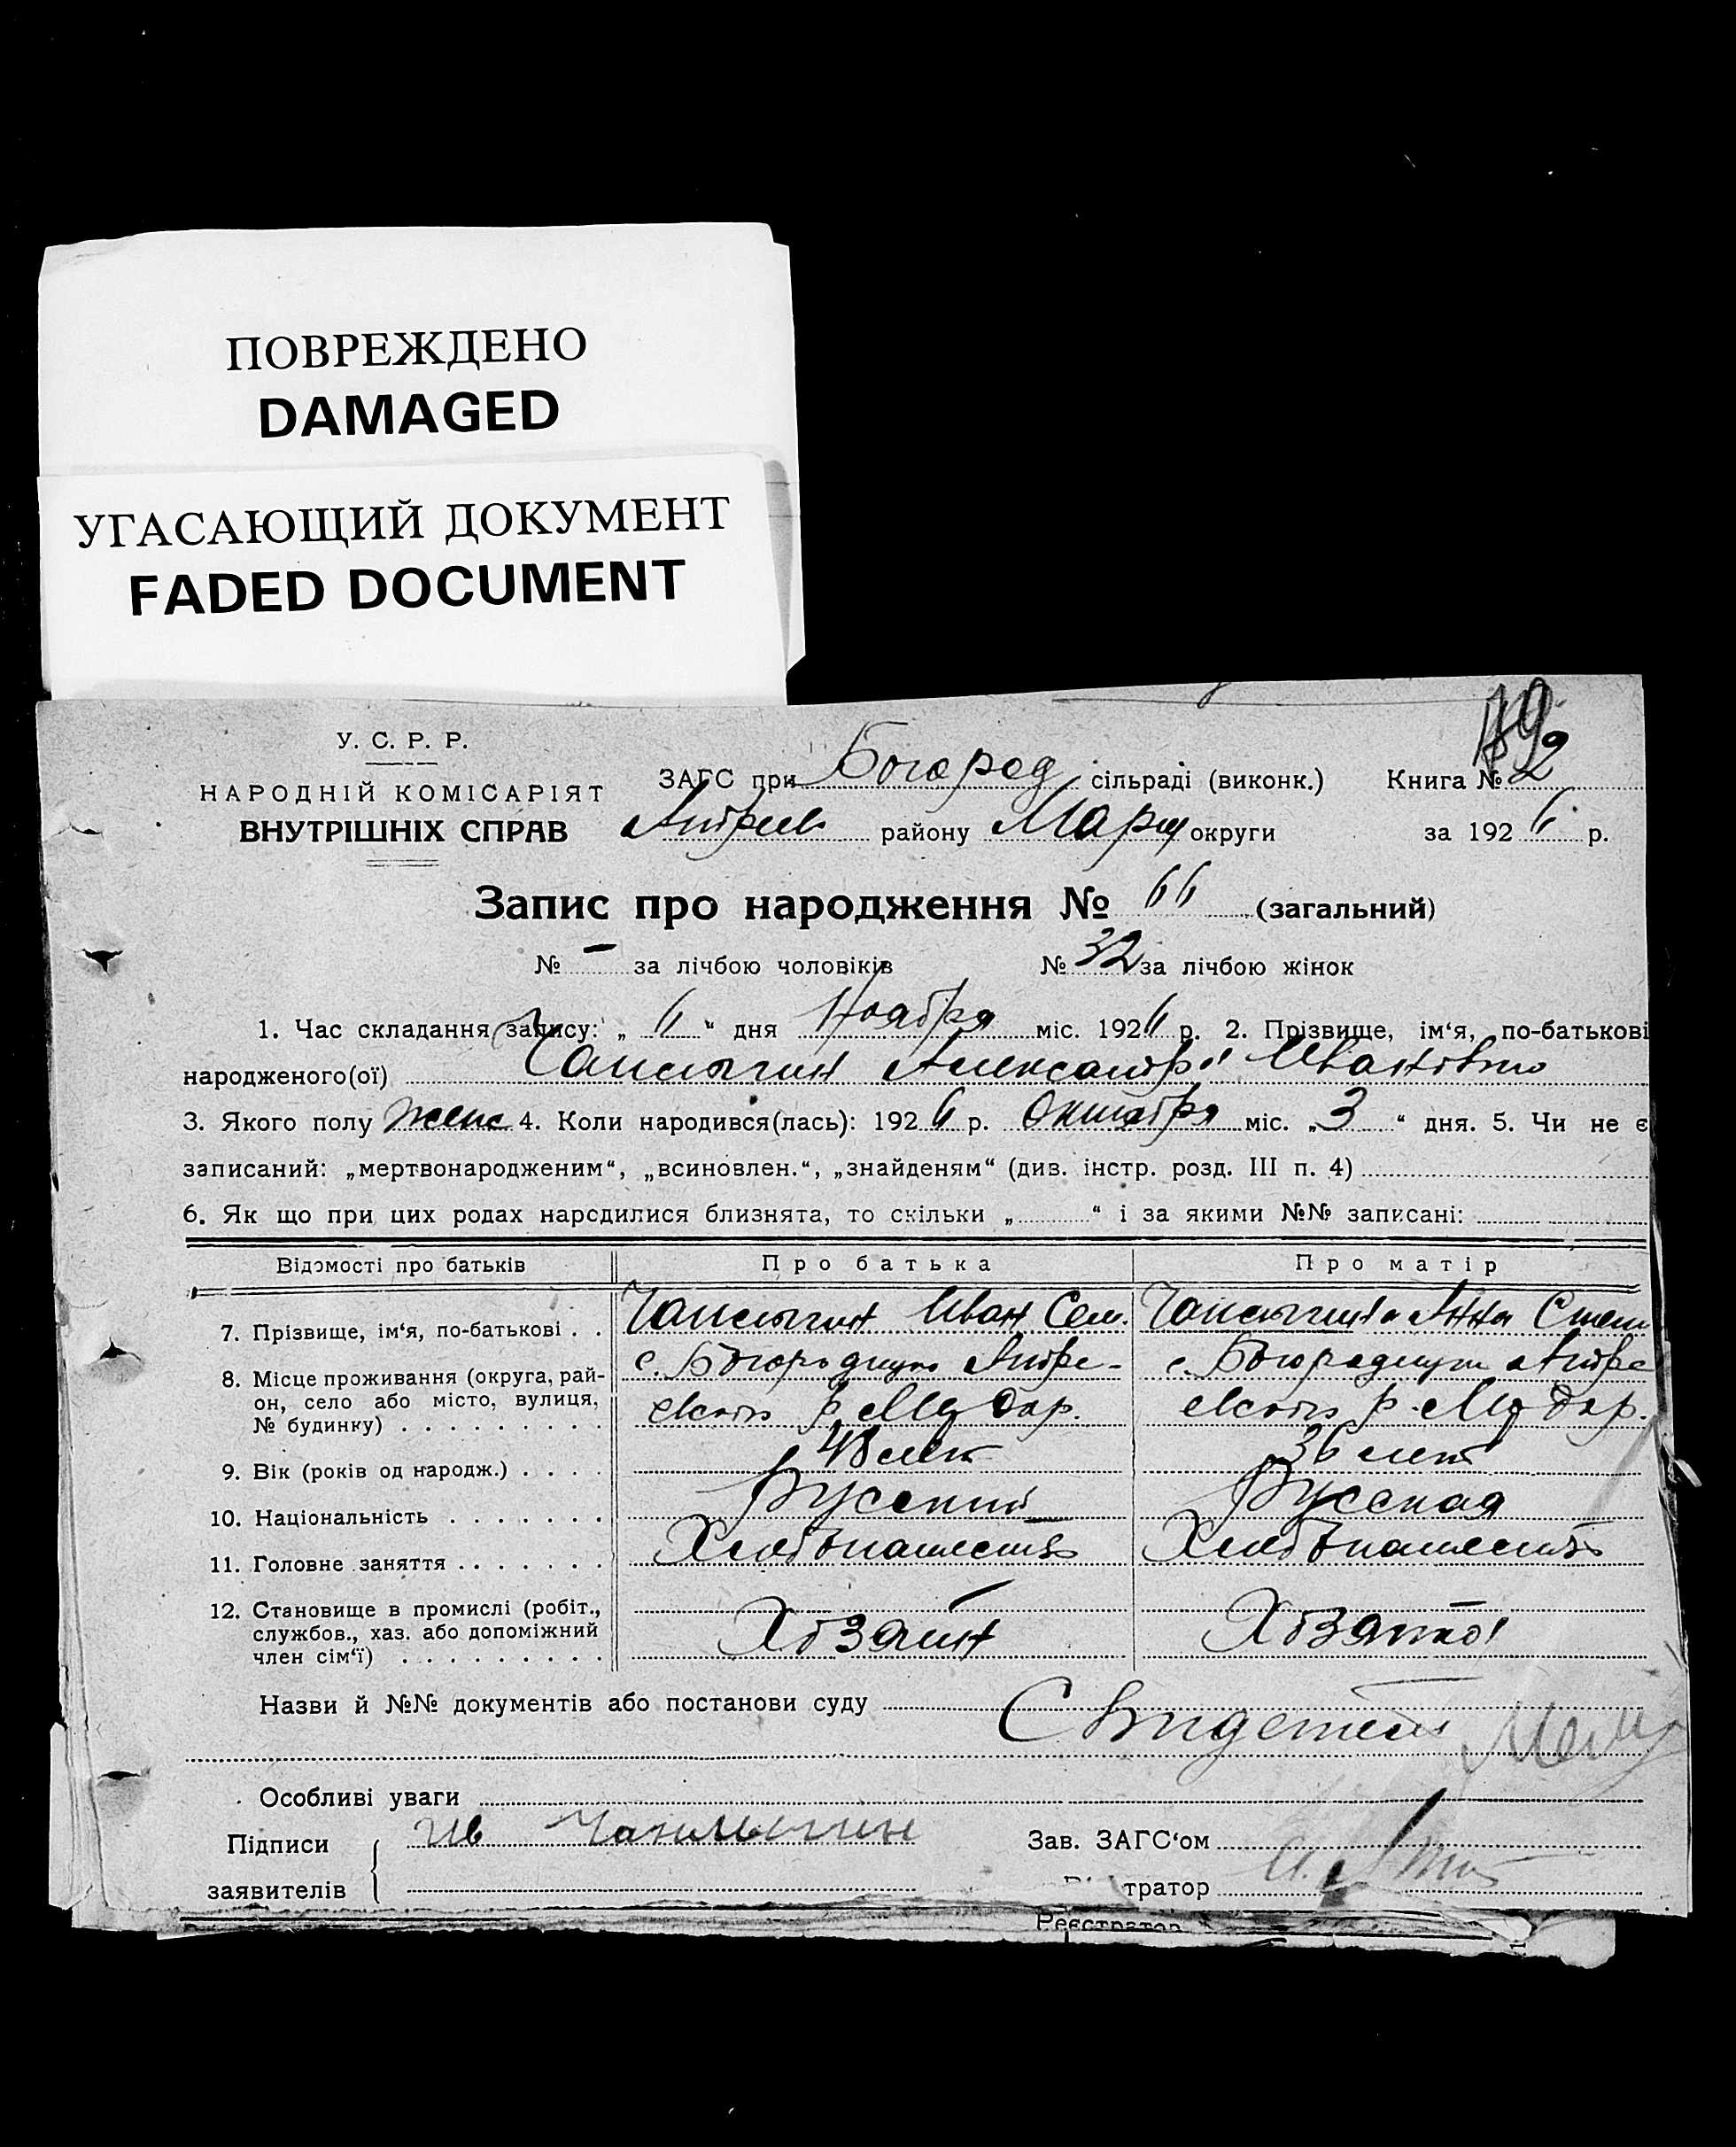 ПОВРЕЖДЕНО
DAMAGED
УГАСАЮЩИЙ ДОКУМЕНТ
FADED DOCUMENT
У. С. Р. Р.
НАРОДНІЙ КОМІСАРІЯТ
ВНУТРІШНІХ СПРАВ
ЗАГС при Богород. сільраді (виконк.) Книга № 2
Андреев району Мариу округи за 1926 р.
Запис про народження № 66 (загальний)
№ - за лічбою чоловіків № 32 за лічбою жінок
1. Час складання запису: „ 6 “ дня Ноября міс. 1926 р. 2. Прізвище, ім‘я, по-батькові
народженого(ої) Чаплыгин Александра Ивановна
3. Якого полу женс 4. Коли народився(лась): 1926 р. Октября міс. „3“ дня. 5. Чи не є
записаний: „мертвонародженим“, „всиновлен.“, „знайденям“ (див. інстр. розд. III п. 4)
6. Як що при цих родах народилися близнята, то скільки „ “ і за якими №№ записані:
Відомості про батьків Про батька Про матір
7. Прізвище, ім‘я, по-батькові . . Чаплыгин Иван Сем. Чаплыгина Анна Степ
8. Місце проживання (округа, рай-
он, село або місто, вулиця,
№ будинку) . . . . . . . . .
с. Андре- с.
9. Вік (років од народж.) . . . . 48 лет 36 лет
10. Національність . . . . . . . Русский Русская
11. Головне заняття . . . . . . . Хлебопашество Хлебопашество
12. Становище в промислі (робіт.,
службов., хаз. або допоміжний
член сім‘ї) . . . . . . . . .
Хозяин Хозяйка
Назви й №№ документів або постанови суду
Особливі уваги
Підписи Ив Чаплыгин Зав. ЗАГС‘ом
заявителів тратор
Реєстратор